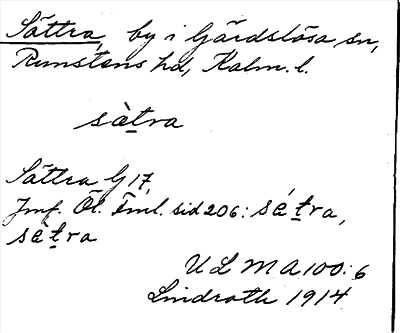 Sättra, by i Gärdslösa sn,
Runstens hd, Kalm. l.
sàt̲ra
Sättra G 17,
Jmf. Öl. Fml. sid 206: sát̲ra,
sàt̲ra
ULMA 100:6
Lindroth 1914